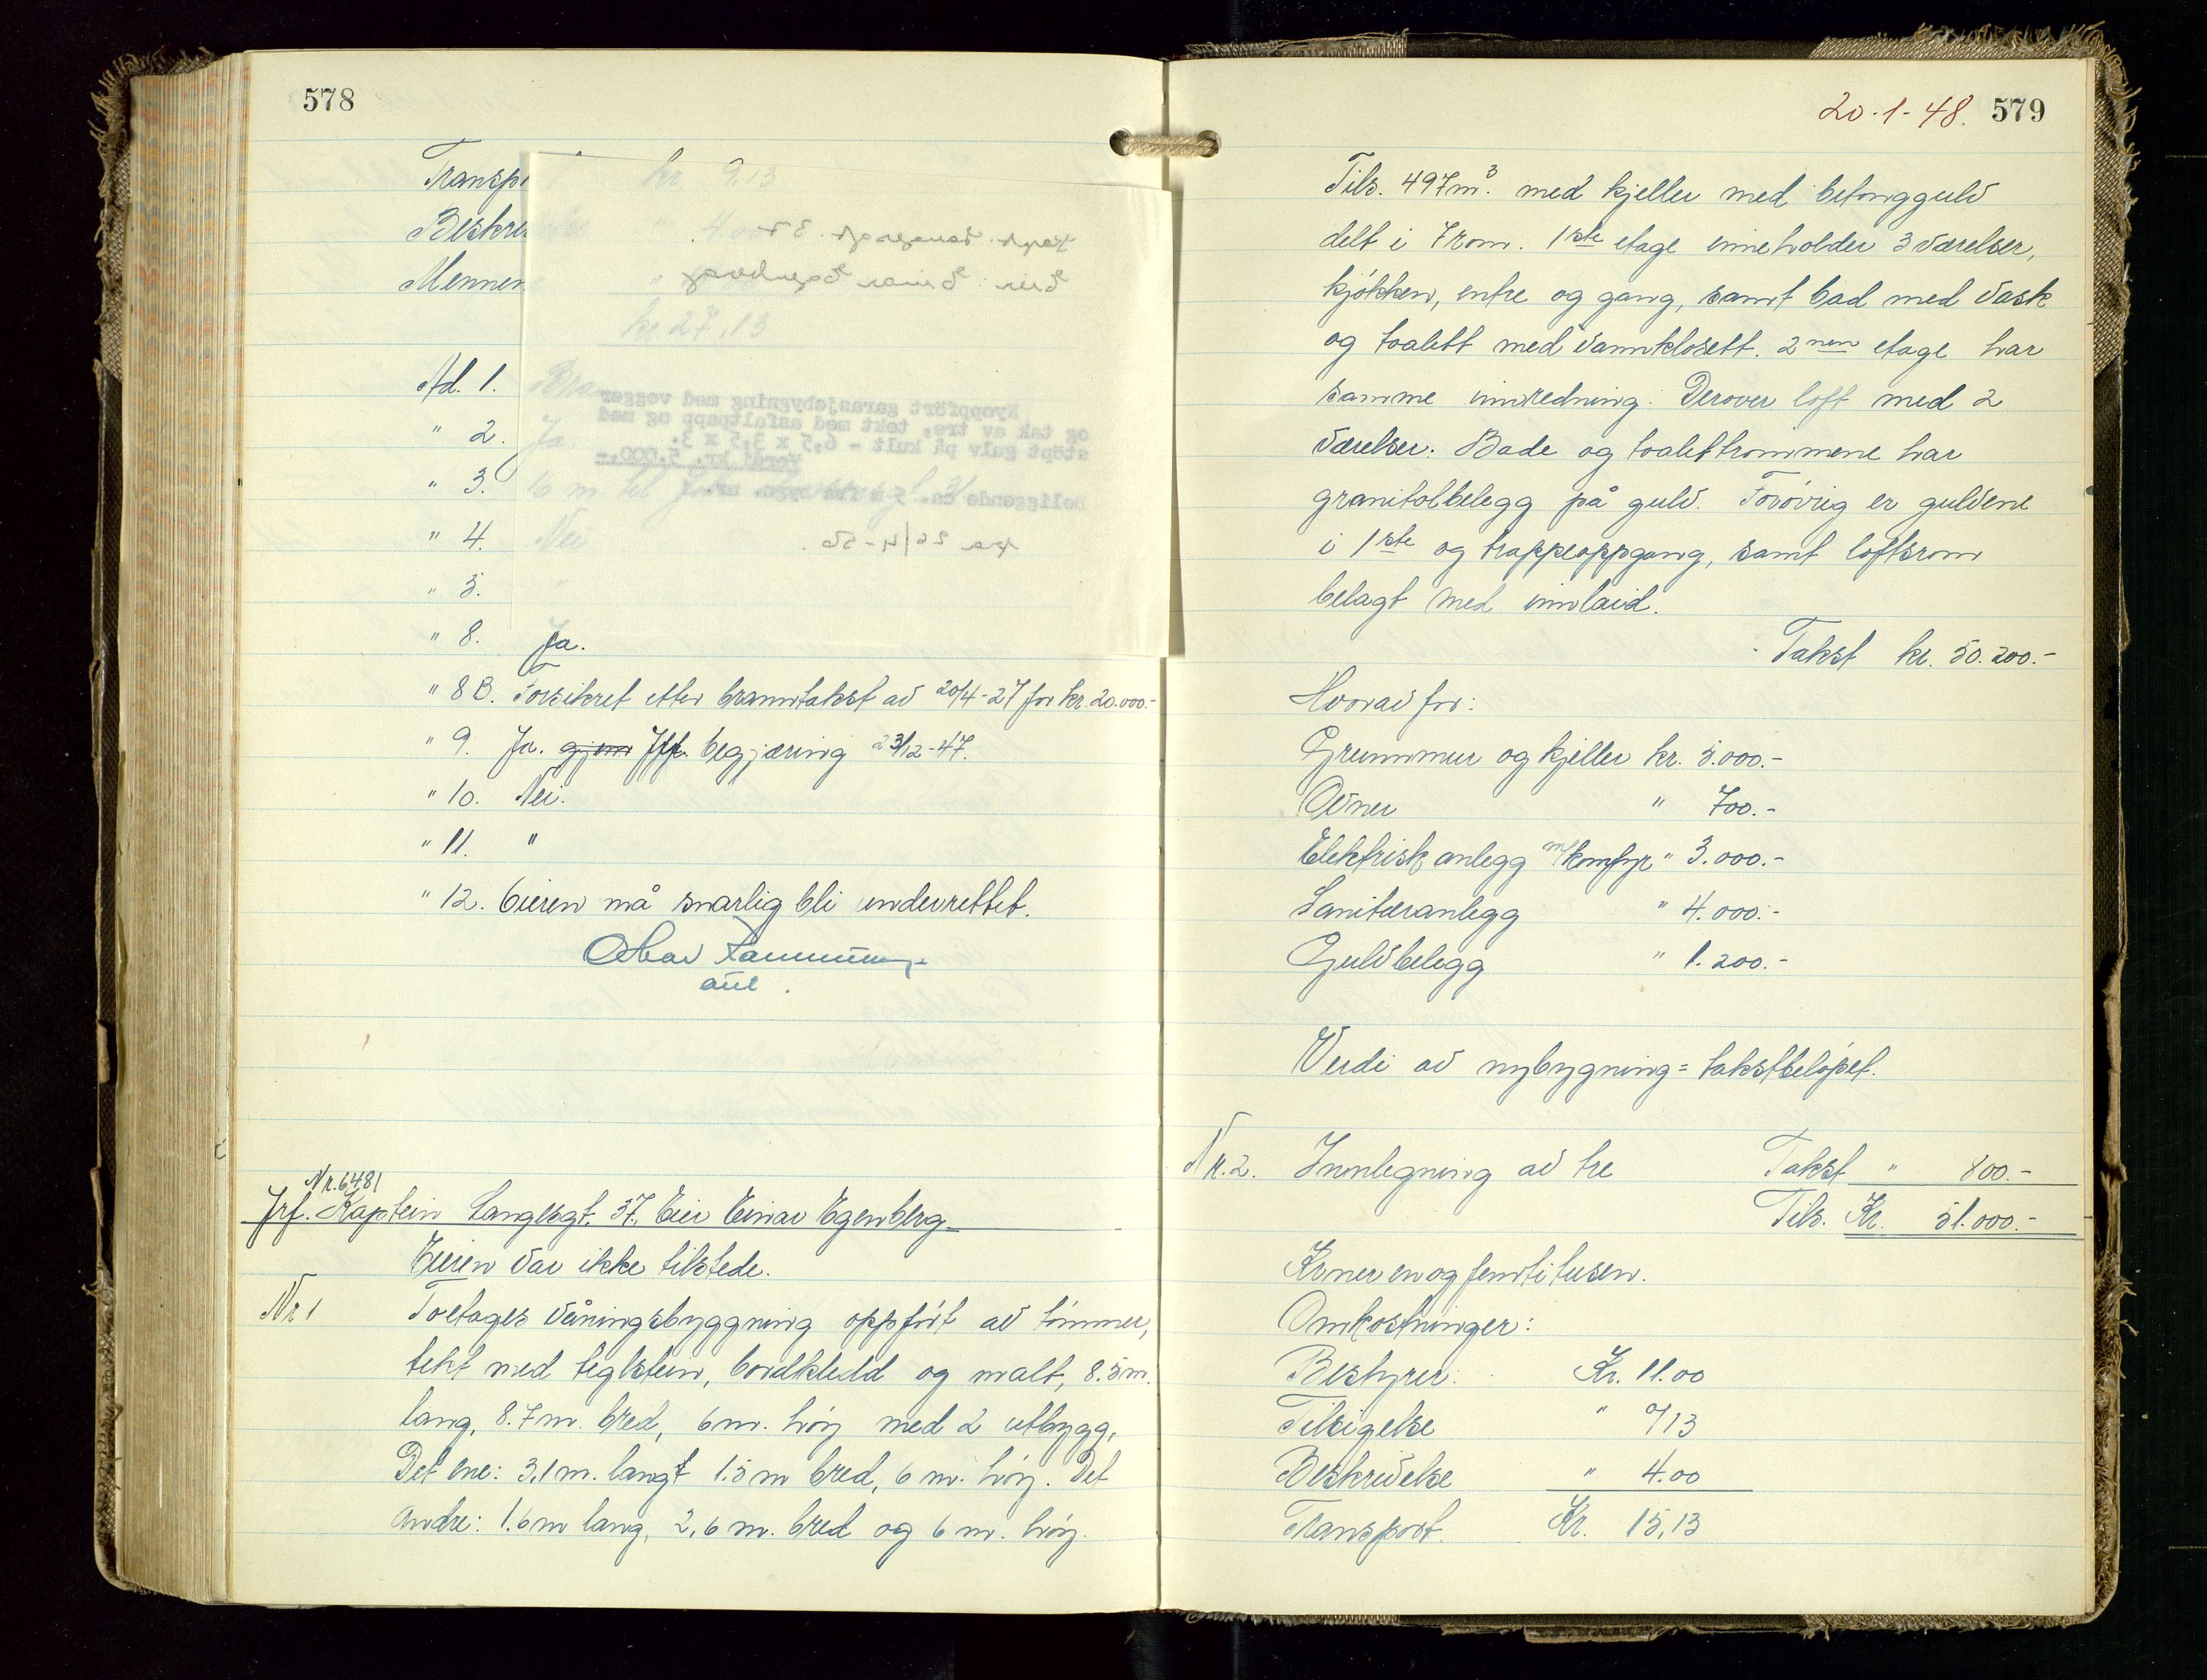 578
Transp
Beskri
Mennen
kr 9.13
kr 27.13
Ad. 1. Bra
" 2. Ja
" 3. 16 m. til
" 4. Nei
" 5. "
Nyoppført garasjebygning med vegger
og tak av tre, tekt med asfaltpapp og med
støpt gulv på kult - 6,5 x 3,5 x 3.
Verdi kr. 5.000.-
Beliggende ca. 5 m fra bygn. nr. 1
" 8. Ja.
" 8 B. Forsikret etter branntakst av 20/4-27 for kr. 20.000.-
" 9. Ja. gjen Jfr. begjæring 23/12-47.
" 10. Nei.
" 11. "
" 12. Eieren må snarlig bli underrettet.
Nr. 6481
Jrf. Kaptein Langesgt. 37. Eier Einar Egenberg
Eieren var ikke tilstede.
Nr 1 Toetages våningsbyggning oppført av tømmer,
tekt med teglstein, bordkledd og malt, 8.5 m.
lang, 8.7 m. bred, 6 m. høy med 2 utbygg.
Det ene: 3,1 m. langt 1.5 m bred, 6 m. høy. Det
andre: 1.6 m lang, 2,6 m. bred og 6 m. høy.
20-1-48. 579
Tils. 497 m³. med kjeller med betonggulv
delt i 7 rom. 1ste etage inneholder 3 værelser,
kjøkken, entre og gang, samt bad med vask
og toalett med vannklosett. 2nen etage har
samme innredning. Derover loft med 2
værelser. Bade og toalettrommene har
granitolbelegg på gulv. Forøvrig er gulvene
i 1ste og trappeoppgang, samt loftsrom
belagt med innlaid.
Takst kr. 50.200.-
Hvorav for:
Grunnmur og kjeller kr. 5.000.-
Ovner " 700.-
Elektrisk anlegg m/komfyr " 3.000.-
Sanitæranlegg " 4.000.-
Gulvbelegg " 1.200.-
Verdi av nybygning = takstbeløpet.
Nr. 2. Innlegning av tre Takst " 800.-
Tils. Kr. 51.000.-
Kroner enogfemtitusen.
Omkostninger:
Bestyrer: Kr. 11.00
Tilsigelse " 0/13
Beskrivelse " 4.00
Transport. Kr. 15,13